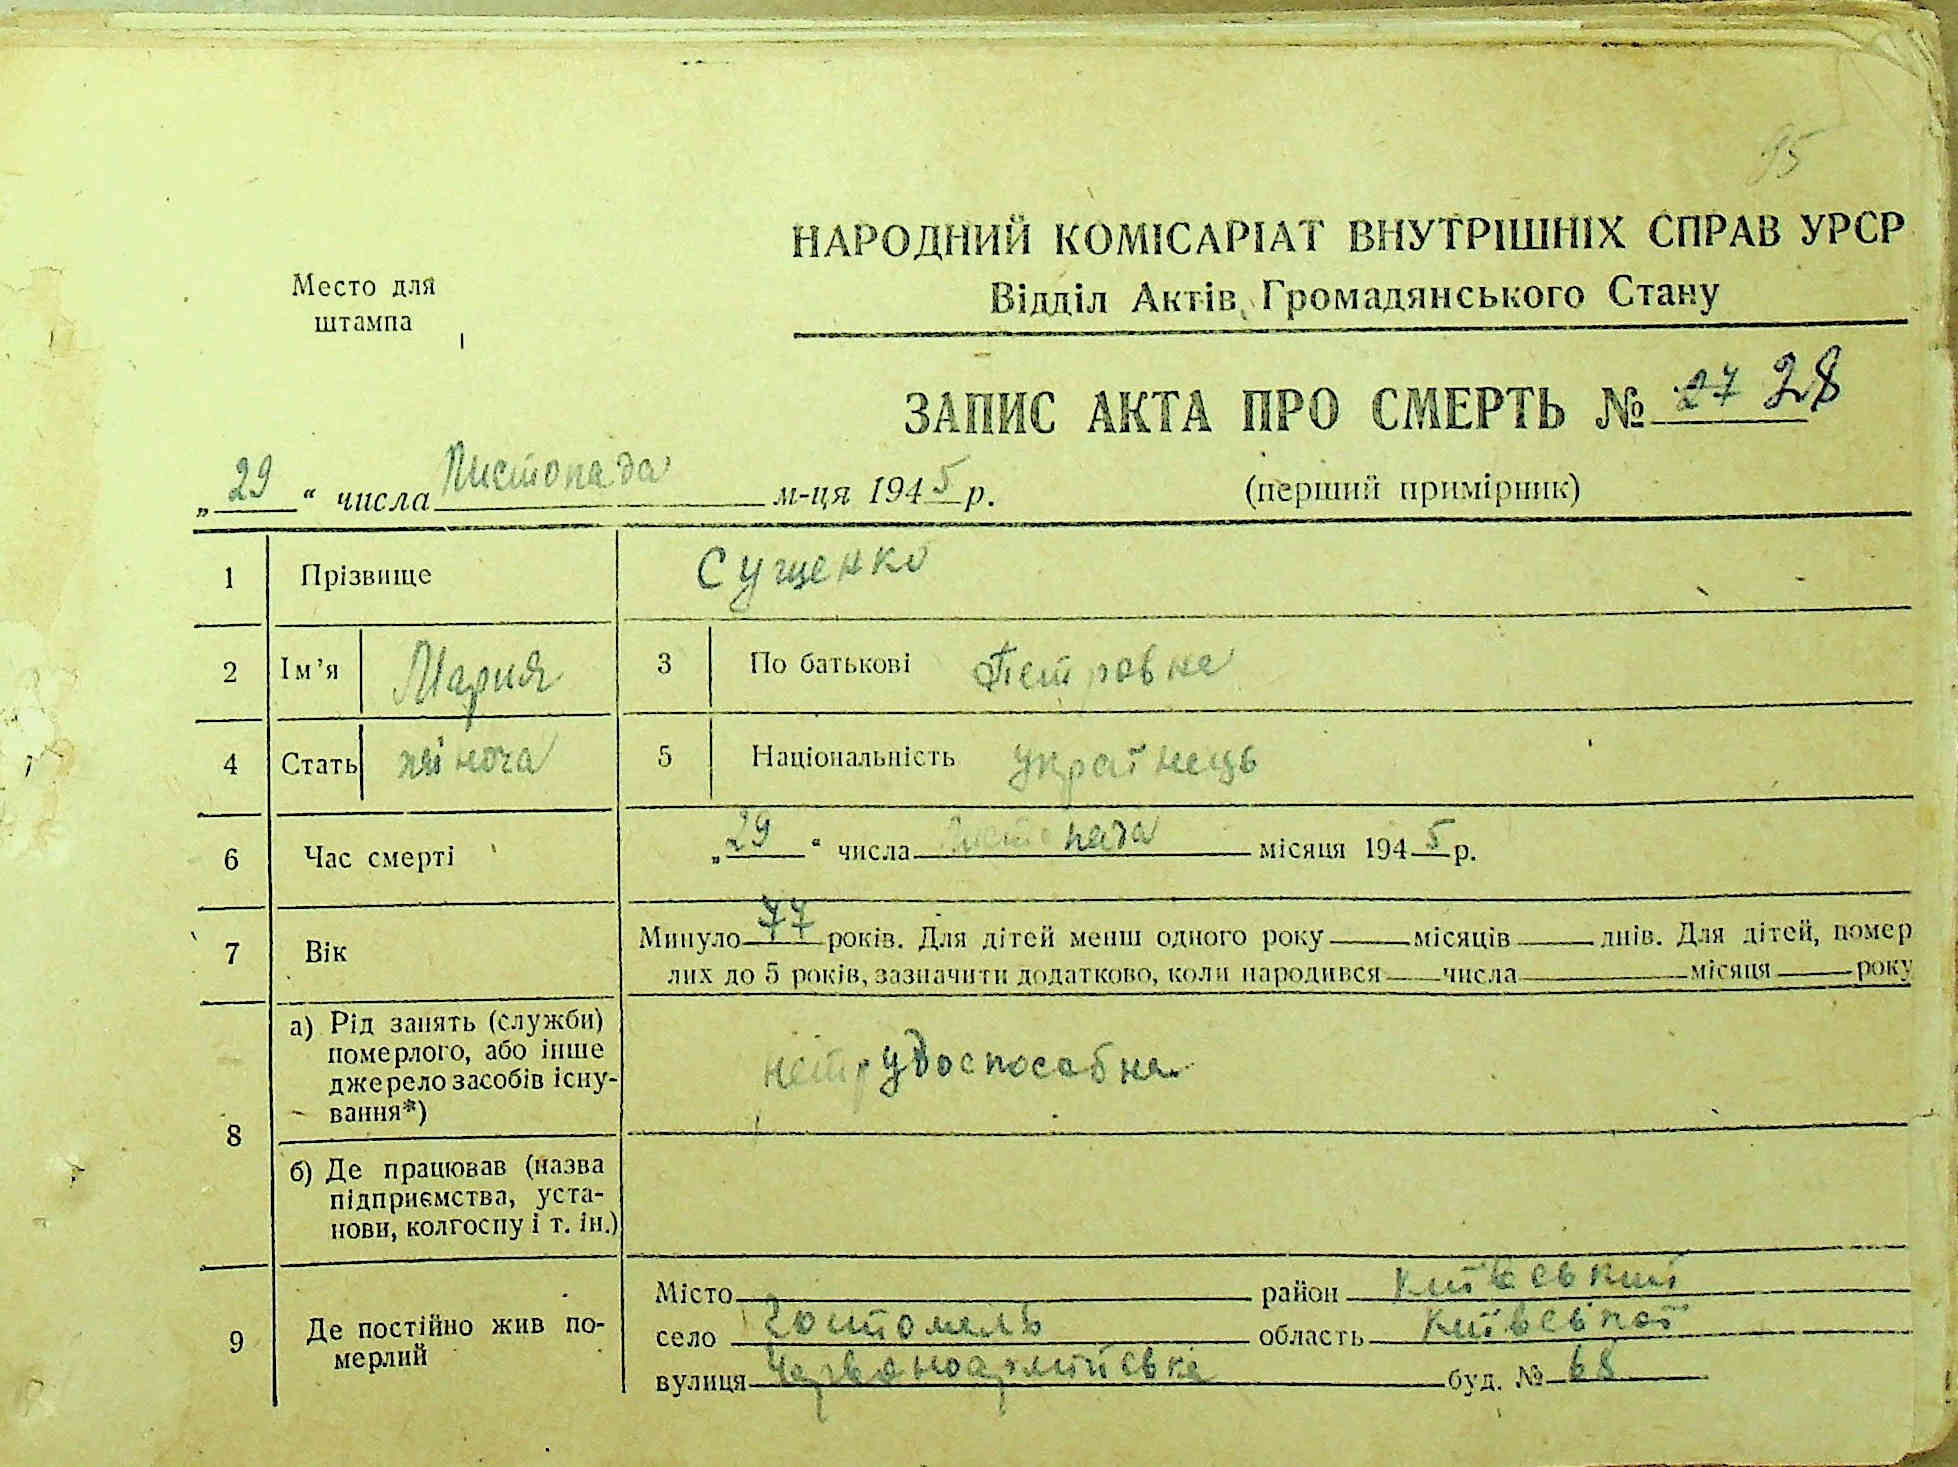 95
НАРОДНИЙ КОМІСАРІАТ ВНУТРІШНІХ СПРАВ УРСР
Відділ Актів Громадянського Стану
Место для
штампа
ЗАПИС АКТА ПРО СМЕРТЬ № 27 28
„29“ числа Листопада м-ця 1945 р.
(перший примірник)
1 Прізвище Сущенко
2 Ім’я Мария 3 По батькові Петровна
4 Стать жіноча 5 Національність українець
6 Час смерті „29“ числа листопада місяця 1945 р.
7 Вік Минуло 77 років. Для дітей менш одного року местяців днів. Для дітей, помер
лих до 5 років, зазначити додатково, коли народився числа місяця року
8 а) Рід занять (служби)
померлого, або інше
джерело засобів існу-
вання*)
нетрудоспособна
б) Де працював (назва
підприємства, уста-
нови, колгоспу і т. ін.)
9 Де постійно жив по-
мерлий
Місто район Київський
село Гостомель область Київської
вулиця Червоноармійська буд. № 68